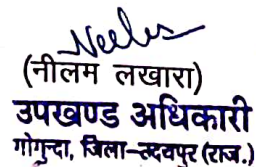 Neelam
(नीलम लखारा)
उपखण्ड अधिकारी
गोगुन्दा, जिला-उदयपुर (राज.)